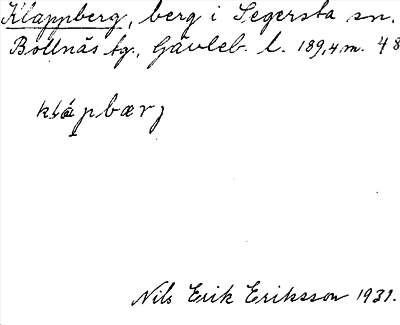 Klappberg, berg i Segersta sn.
Bollnäs tg., Gävleb. l. 189,4 m. 48
Nils Erik Eriksson 1931.